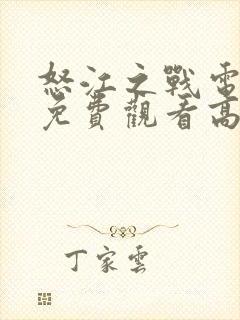 怒江之戰電
免費觀看高
丁家雲